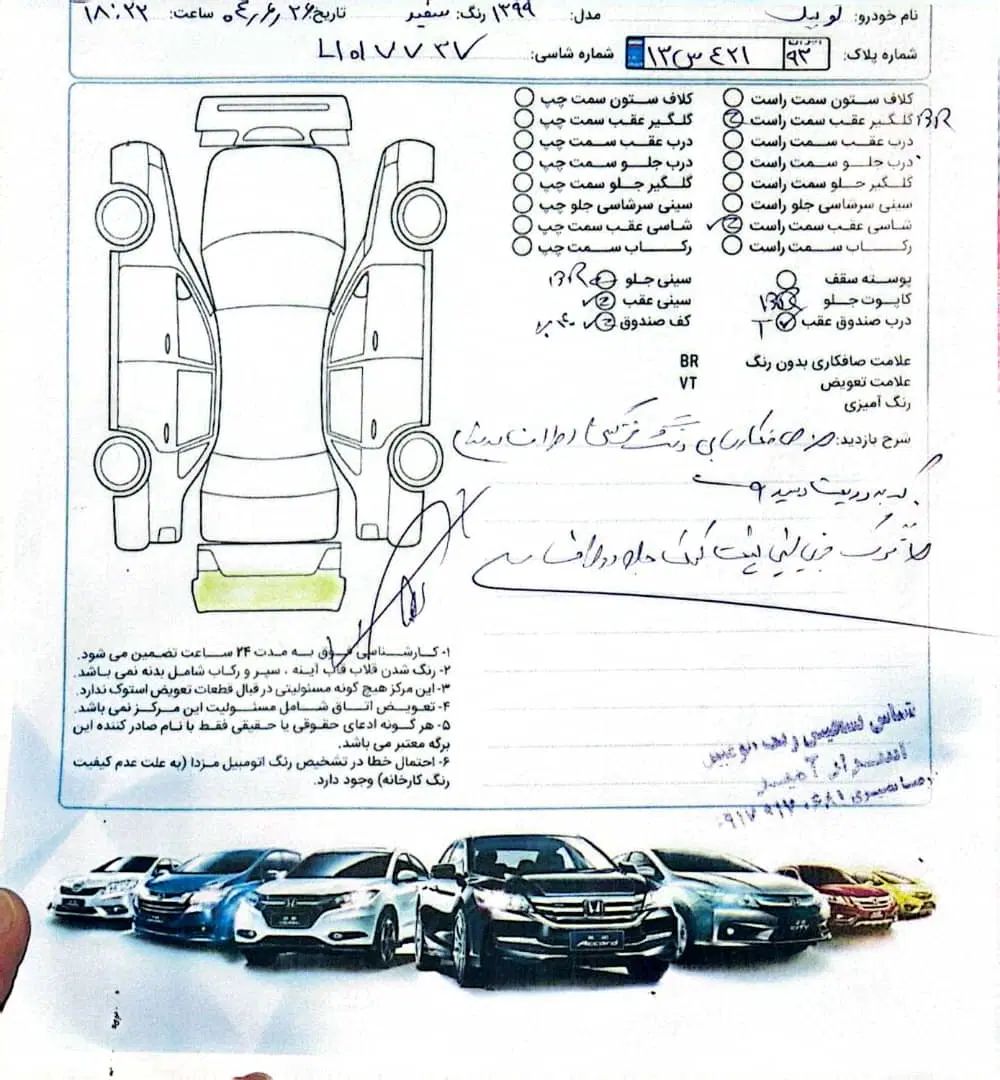 نام خودرو: کوییک مدل: ۱۳۹۹ رنگ: سفید تاریخ: ۰۴/۶/۲۶ ساعت: ۱۸:۲۲
شماره پلاک: ایران ۹۳ ۴۲۱ س ۱۳ شماره شاسی: L۱۰۱۷۷۳۷
کلاف ستون سمت راست کلاف ستون سمت چپ
BR گلگیر عقب سمت راست گلگیر عقب سمت چپ
درب عقب سمت راست درب عقب سمت چپ
درب جلو سمت راست درب جلو سمت چپ
گلگیر جلو سمت راست گلگیر جلو سمت چپ
سینی سرشاسی جلو راست سینی سرشاسی جلو چپ
شاسی عقب سمت راست شاسی عقب سمت چپ
رکاب سمت راست رکاب سمت چپ
پوسته سقف سینی جلو BR
کاپوت جلو BR سینی عقب
درب صندوق عقب T کف صندوق
علامت صافکاری بدون رنگ BR
علامت تعویض VT
رنگ آمیزی
شرح بازدید:
۱- کارشناسی فوق به مدت ۲۴ ساعت تضمین می شود.
۲- رنگ شدن قلاب قاب آینه ، سپر و رکاب شامل بدنه نمی باشد.
۳- این مرکز هیچ گونه مسئولیتی در قبال قطعات تعویض استوک ندارد.
۴- تعویض اتاق شامل مسئولیت این مرکز نمی باشد.
۵- هر گونه ادعای حقوقی یا حقیقی فقط با نام صادر کننده این
برگه معتبر می باشد.
۶- احتمال خطا در تشخیص رنگ اتومبیل مزدا (به علت عدم کیفیت
رنگ کارخانه) وجود دارد.
Accord